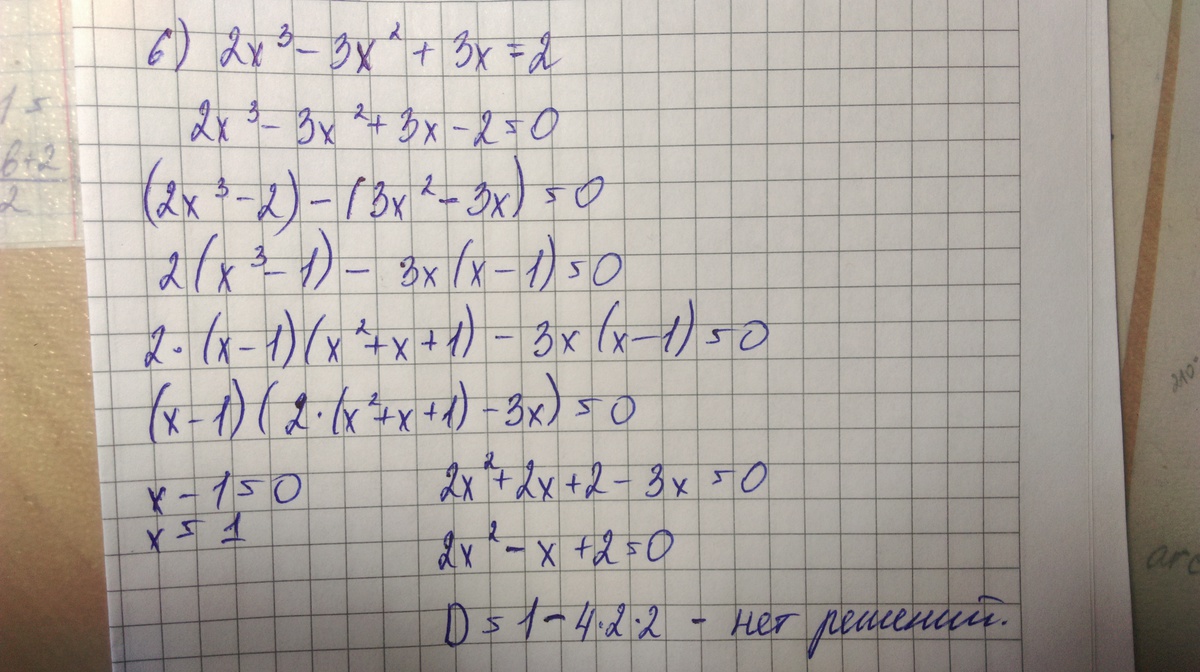 1 =
6+2
2
б) 2x³ - 3x² + 3x = 2
2x³ - 3x² + 3x - 2 = 0
(2x³ - 2) - (3x² - 3x) = 0
2(x³ - 1) - 3x(x - 1) = 0
2·(x - 1)(x² + x + 1) - 3x(x - 1) = 0
(x - 1)(2·(x² + x + 1) - 3x) = 0
x - 1 = 0
x = 1
2x² + 2x + 2 - 3x = 0
2x² - x + 2 = 0
D = 1 - 4·2·2 - нет решений.
210°
arc